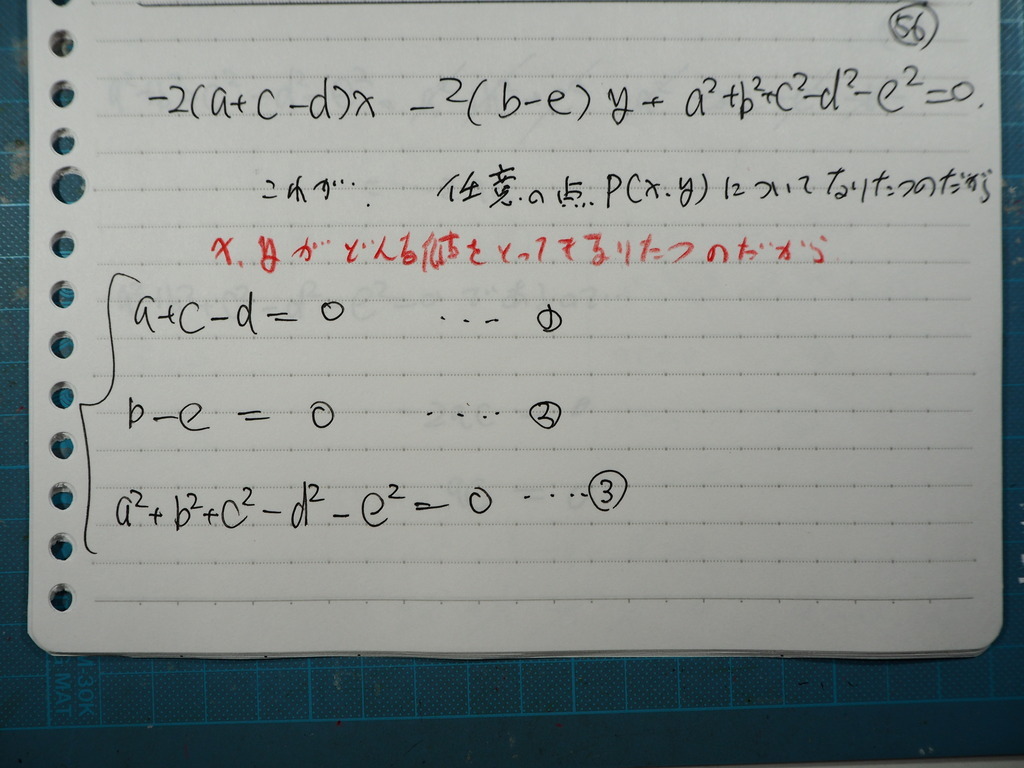 56
-2(a+c-d)x -2(b-e)y + a²+b²+c²-d²-e²=0.
これが. 任意の点 P(x.y)についてなりたつのだから
x, yがどんな値をとってもなりたつのだから
a+c-d = 0 ... ①
b-e = 0 .... ②
a²+b²+c²-d²-e² = 0 ....③
30K
MAT